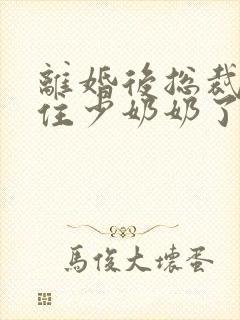 離婚後總裁
住少奶奶了
馬俊大壞蛋